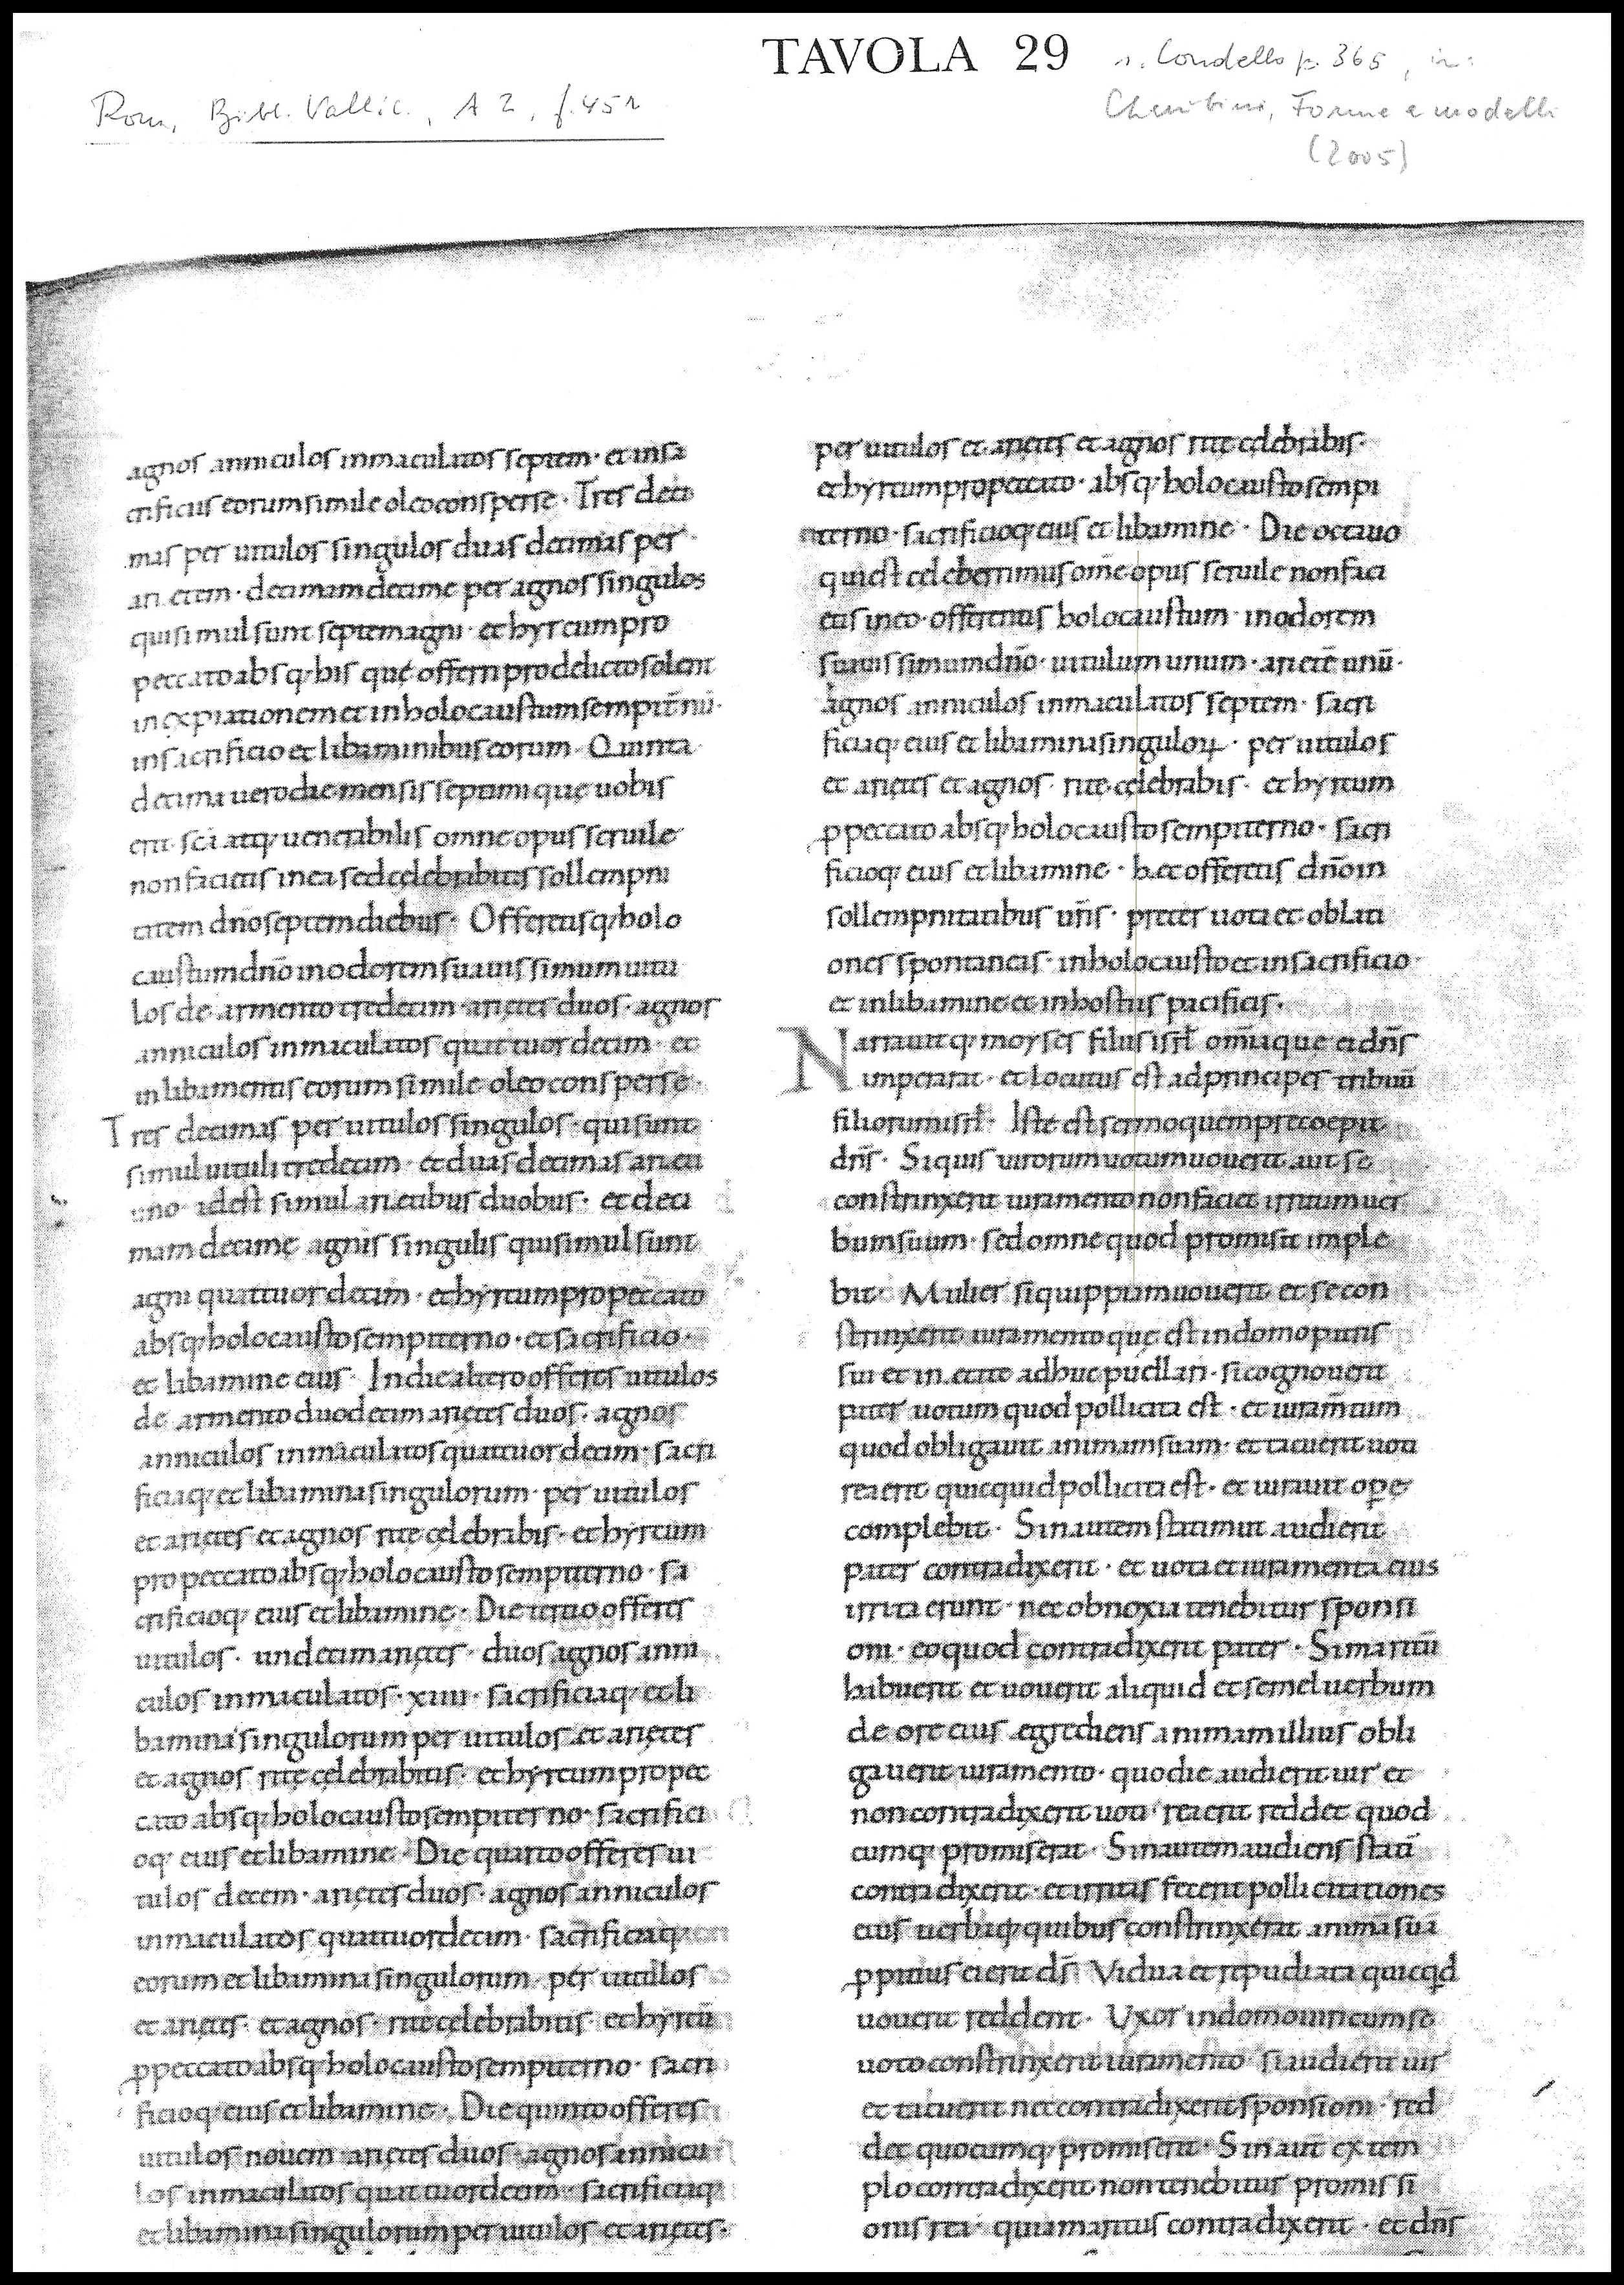 TAVOLA 29
s. Condello p. 365, in:
Cherubini, Forme e modelli
(2005)
Rom, Bibl. Vallic., A 2, f. 45r
agnos anniculos inmaculatos septem · et in sa
crificiis eorum simile oleo consperse · Tres deci
mas per uitulos singulos duas decimas per
arietem · decimam decime per agnos singulos
qui simul sunt septem agni · et hyrcum pro
peccato absq; his quę offerri pro delicto solent
in expiationem et in holocaustum sempit̄nū ·
in sacrificio et libaminibus eorum · Quinta
decima uero die mensis septimi quę uobis
erit sc̄a atq; uenerabilis omne opus seruile
non facietis in ea sed celebrabitis sollempni
tatem dn̄o septem diebus · Offeretisq; holo
caustum dn̄o in odorem suauissimum uitu
los de armento tredecim · arietes duos · agnos
anniculos inmaculatos quattuordecim · et
in libamentis eorum simile oleo consperse ·
Tres decimas per uitulos singulos · qui sunt
simul uituli tredecim · et duas decimas arieti
uno · id est simul arietibus duobus · et deci
mam decime agnis singulis qui simul sunt
agni quattuordecim · et hyrcum pro peccato
absq; holocausto sempiterno · et sacrificio ·
et libamine eius · In die altero offeres uitulos
de armento duodecim arietes duos · agnos
anniculos inmaculatos quattuordecim · sacri
ficiaq; et libamina singulorum · per uitulos
et arietes et agnos rite cęlebrabis · et hyrcum
pro peccato absq; holocausto sempiterno · sa
crificioq; eius et libamine · Die tertio offeres
uitulos · undecim arietes · duos agnos anni
culos inmaculatos · xiiii · sacrificiaq; et li
bamina singulorum per uitulos et arietes
et agnos rite cęlebrabitis · et hyrcum pro pec
cato absq; holocausto sempiterno · sacrifici
oq; eius et libamine · Die quarto offeres ui
tulos decem · arietes duos · agnos anniculos
inmaculatos quattuordecim · sacrificiaq;
eorum et libamina singulorum · per uitulos
et arietes · et agnos · rite cęlebrabitis · et hyrcū
p peccato absq; holocausto sempiterno · sacri
ficioq; eius et libamine · Die quinto offeres
uitulos nouem arietes duos · agnos annicu
los inmaculatos quattuordecim · sacrificiaq;
et libamina singulorum per uitulos et arietes ·
per uitulos et arietes et agnos rite cęlebrabis ·
et hyrcum pro peccato · absq; holocausto sempi
terno · sacrificioq; eius et libamine · Die octauo
qui est celeberrimus om̄e opus seruile non faci
etis in eo · offerentes holocaustum · in odorem
suauissimum dn̄o · uitulum unum · arietē unū ·
agnos anniculos inmaculatos septem · sacri
ficiaq; eius et libamina singuloꝝ · per uitulos
et arietes et agnos · rite cęlebrabis · et hyrcum
p peccato absq; holocausto sempiterno · sacri
ficioq; eius et libamine · hec offeretis dn̄o in
sollempnitatibus ur̄is · preter uota et oblati
ones spontaneas · in holocausto et in sacrificio ·
et in libamine et in hostiis pacificis ·
Narrauitq; moyses filiis isrl̄ om̄ia que ei dn̄s
imperarat · et locutus est ad principes tribuū
filiorum isrl̄ · Iste est sermo quem precoepit
dn̄s · Siquis uirorum uotum uouerit aut se
constrinxerit iuramento non faciet irritum uer
bum suum · sed omne quod promisit imple
bit · Mulier si quippiam uouerit et se con
strinxerit iuramento quę est in domo patris
sui et in etate adhuc puellari · si cognouerit
pater uotum quod pollicita est · et iuram̄tum
quod obligauit animam suam · et tacuerit uoti
rea erit quicquid pollicita est · et iurauit ope
complebit · Sin autem statim ut audierit
pater contradixerit · et uota et iuramenta eius
irrita erunt · nec obnoxia tenebitur sponsi
oni · eo quod contradixerit pater · Si maritū
habuerit et uouerit aliquid et semel uerbum
de ore eius egrediens animam illius obli
gauerit iuramento · quo die audierit uir et
non contradixerit uoti rea erit reddet quod
cumq; promiserat · Sin autem audiens statī
contradixerit · et irritas fecerit pollicitationes
eius uerbaq; quibus constrinxerat animā suā
ppitius ei erit ds̄ · Vidua et repudiata quicqd
uouerit reddent · Uxor in domo uiri cum se
uoto constrinxerit iuramento · si audierit uir
et tacuerit nec contradixerit sponsioni · red
det quocumq; promiserit · Sin aut̄ extem
plo contradixerit non tenebitur promissi
onis rea · quia maritus contradixerit · et dn̄s